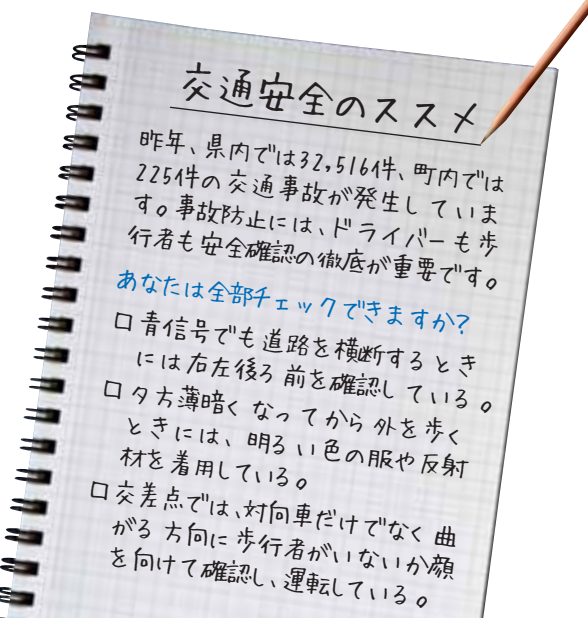 交通安全のススメ
昨年、県内では32,516件、町内では
225件の交通事故が発生していま
す。事故防止には、ドライバーも歩
行者も安全確認の徹底が重要です。
あなたは全部チェックできますか?
□青信号でも道路を横断するとき
には右左後ろ前を確認している。
□夕方薄暗くなってから外を歩く
ときには、明るい色の服や反射
材を着用している。
□交差点では、対向車だけでなく曲
がる方向に歩行者がいないか顔
を向けて確認し、運転している。